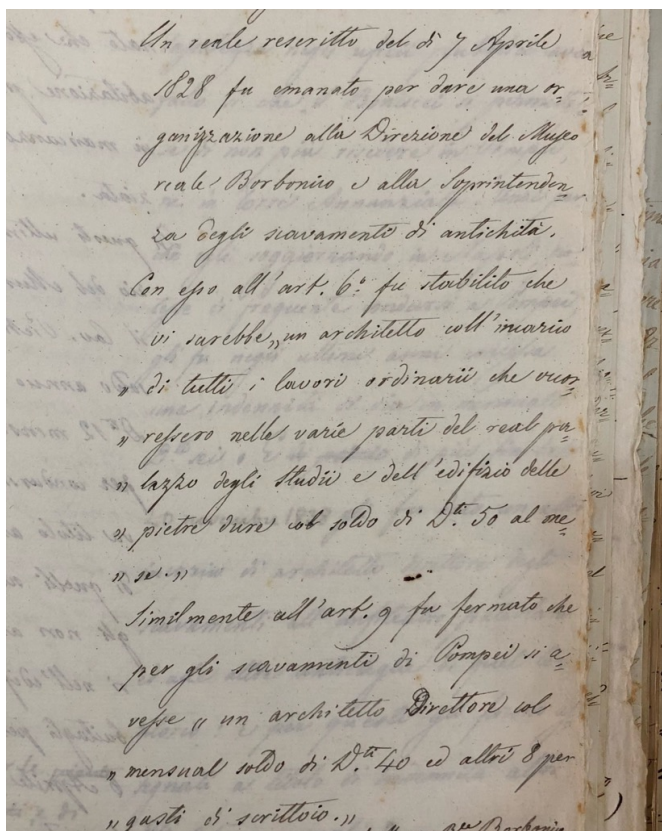 Un reale rescritto del di 7 Aprile
1828 fu emanato per dare una or=
ganizzazione alla Direzione del Museo
reale Borbonico e alla Soprintenden=
za degli scavamenti di antichità.
Con esso all'art. 6.º fu stabilito che
vi sarebbe „ un architetto coll'incarico
„ di tutti i lavori ordinarii che occor=
„ ressero nelle varie parti del real pa=
„ lazzo degli Studii e dell'edifizio delle
„ pietre dure col soldo di D.ti 50 al me=
„ se. „
Similmente all'art. 9 fu fermato che
per gli scavamenti di Pompei si a=
vesse „ un architetto Direttore col
„ mensual soldo di D.ti 40 ed altri 8 per
„ gasti di scrittoio. „